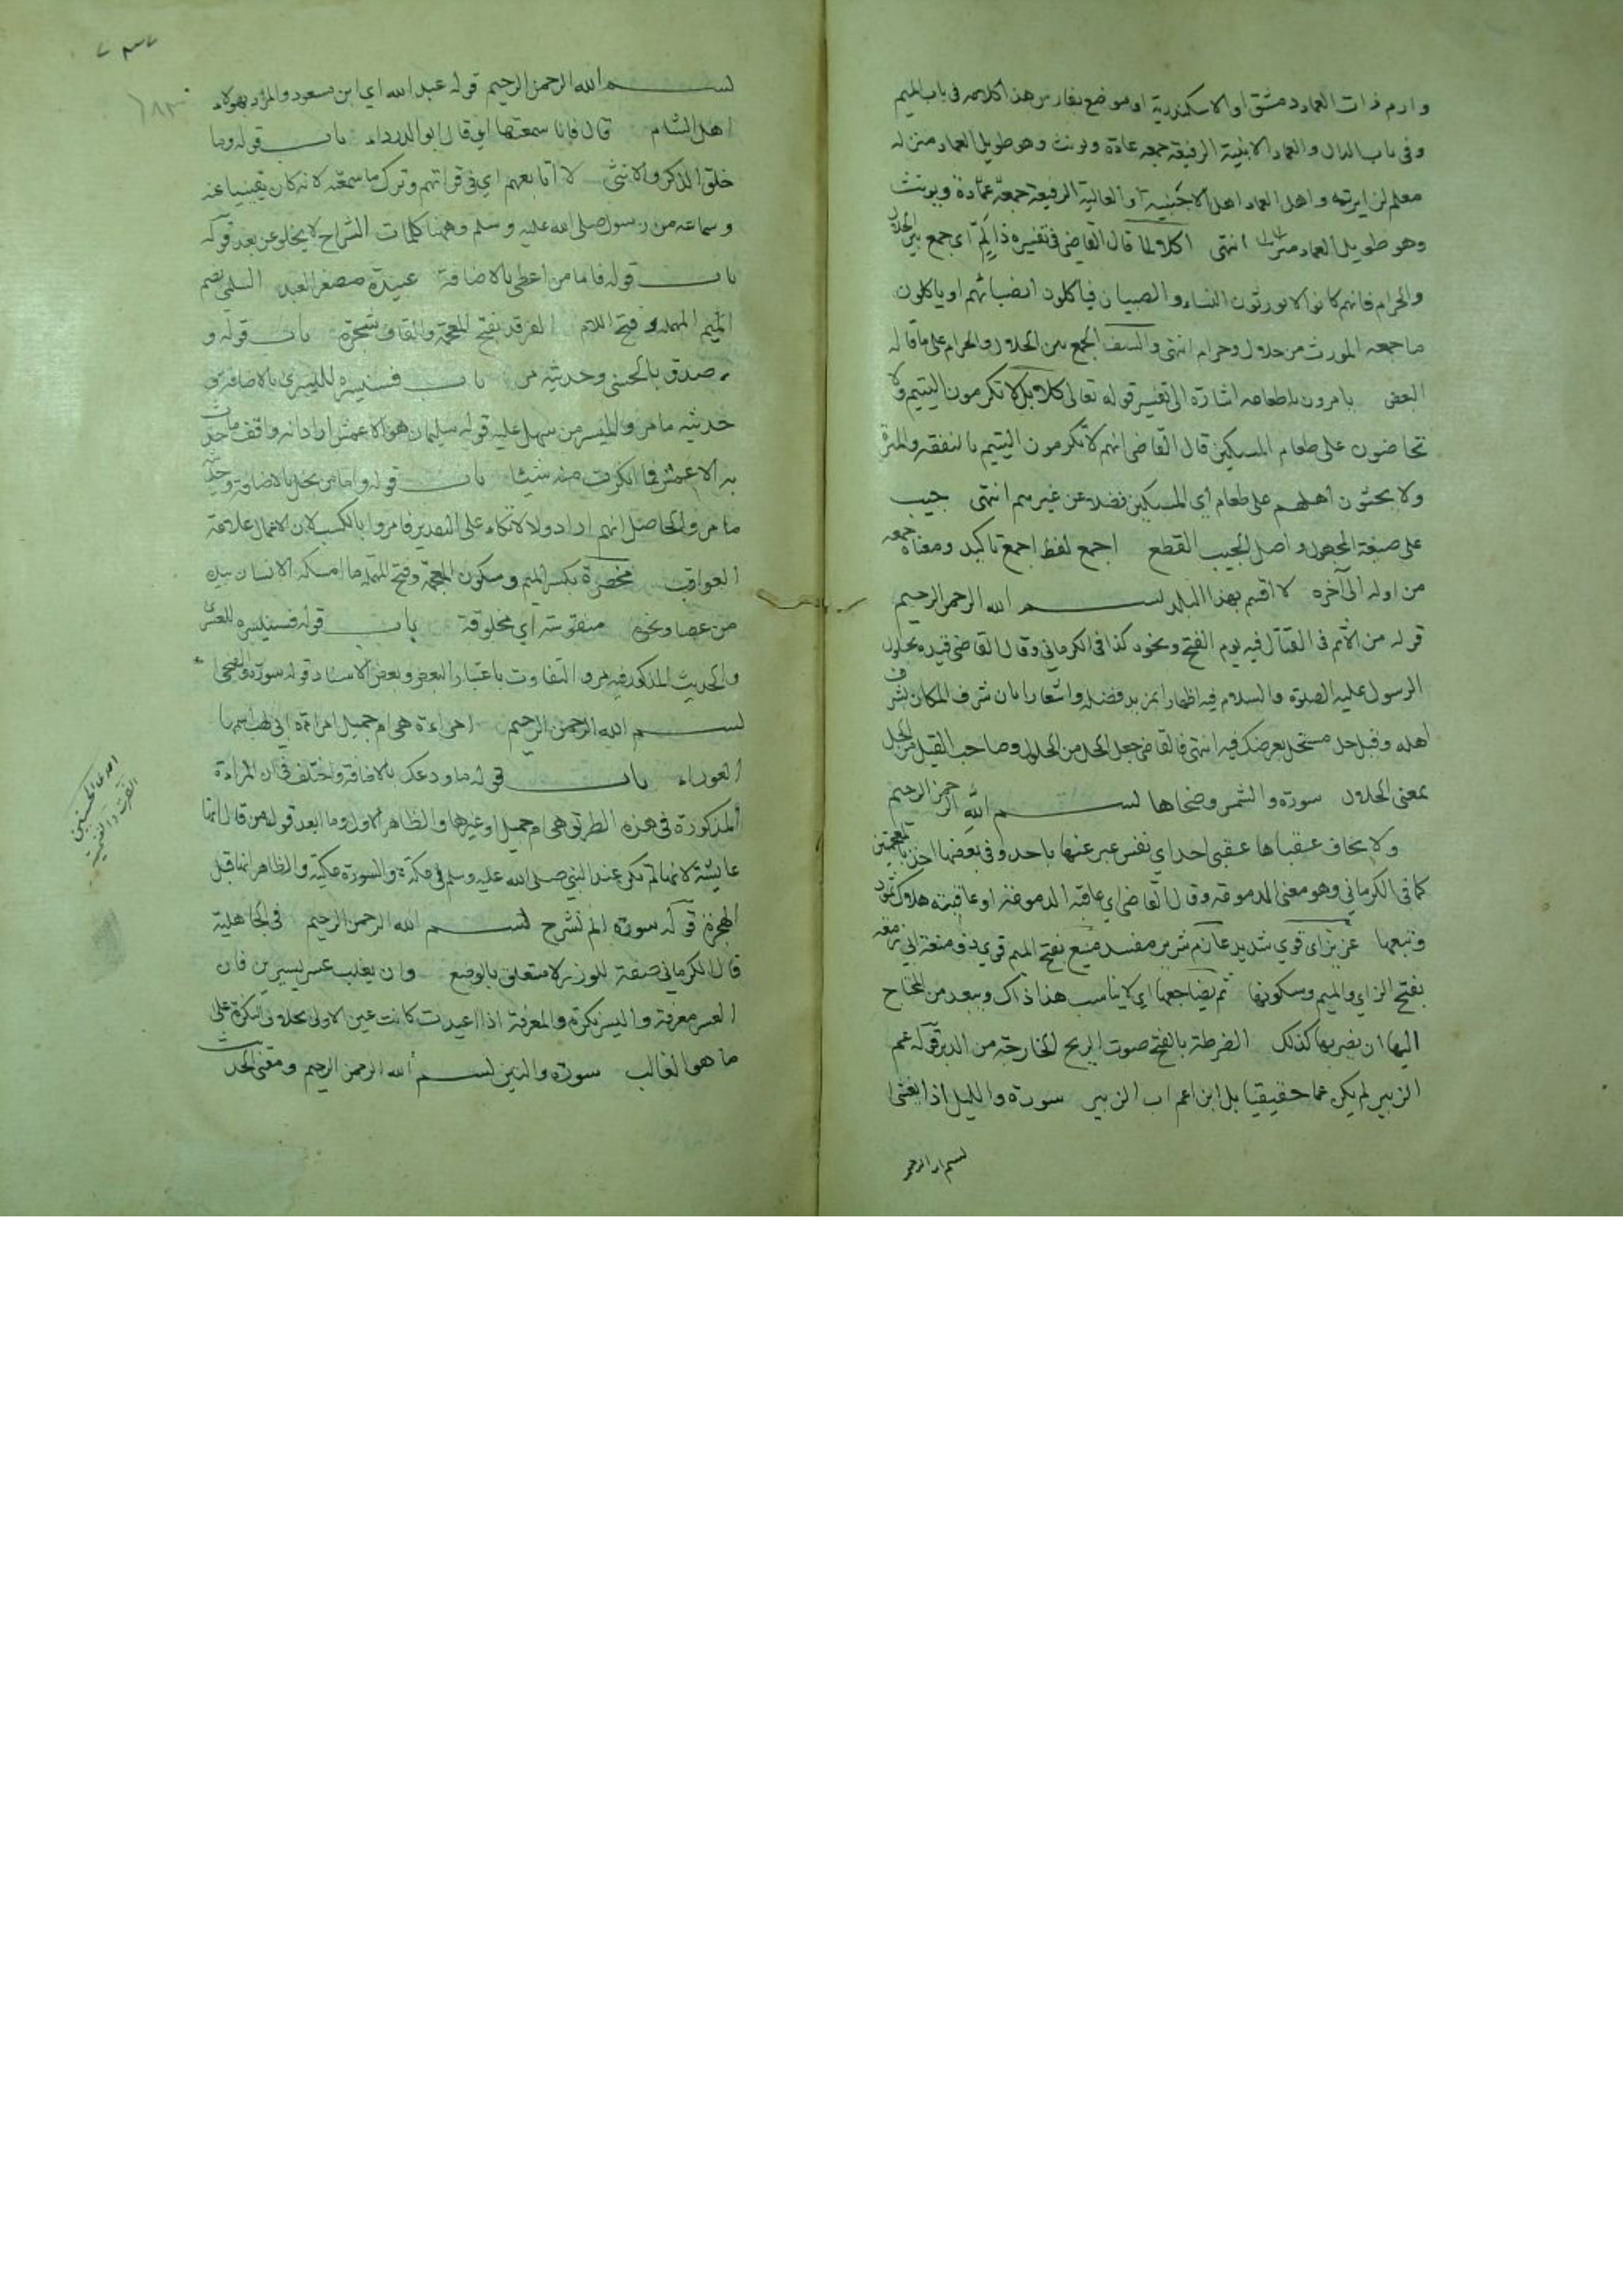 وارم ذات العماد دمشق او الاسكندرية او موضع بفارس هذا كلامه في باب الميم
وفي باب الدال والعماد الابنية الرفيعة جمعه عمادة ويونث وهو طويل العماد منزله
معلم لزايريه واهل العماد اهل الاخبية او العالية الرفيعة جمعه عمادة ويونث
وهو طويل العماد انتهى اكلا لما قال القاضي في تفسيره ذا لم اى جمع بين الحلال
والحرام فانهم كانوا لا يورثون النساء والصبيان فياكلون انصباءهم او ياكلون
ما جمعه المورث من حلال وحرام انتهى والسف الجمع بين الحلال والحرام على ما قاله
البعض يامرون باطعامه اشارة الى تفسير قوله تعالى كلا بل لا تكرمون اليتيم ولا
تحاضون على طعام المسكين قال القاضي انهم لا تكرمون اليتيم بالنفقة والمبرة
ولا يحثون اهلهم على طعام اي المسكين فضلا عن غيرهم انتهى جيب
على صيغة المجهول واصل الجيب القطع اجمع لفظ اجمع تاكيد ومعناه جمعه
من اوله الى آخره لا اقسم بهذا البلد بسم الله الرحمن الرحيم
قوله من الاثم في القتال فيه يوم الفتح ونحوه كذا في الكرماني وقال القاضي قيده بحلول
الرسول عليه الصلوة والسلام فيه اظهارا لمزيد فضله واشعارا بان شرف المكان بشرف
اهله وقيل حل مستحل تعرضك فيه انتهى فالقاضي جعل الحل من الحلول وصاحب القيل من الحل
بمعنى الحلال سورة والشمس وضحاها بسم الله الرحمن الرحيم
ولا يخاف عقباها عقبى احد اي نفس عبر عنها باحد وفي بعضها اخذ بالمعجمتين
كما في الكرماني وهو معنى الدمدمة وقال القاضي اي عاقبة الدمدمة او عاقبة هلاك ثمود
وتبعها عزيز اى قوي شديد عارم شرير مفسد منيع بفتح الميم قوي ذو منعة ابي زمعة
بفتح الزاي والميم وسكونها ثم يضاجعها اي لا يناسب هذا ذاك ويبعد من المحتاج
اليها ان يضربها كذلك الضرطة بالفتح صوت الريح الخارجة من الدبر قوله عم
الزبير لم يكن عما حقيقيا بل ابن اعم اب الزبير سورة والليل اذا يغشى
بسم الله الرحمن
بسم الله الرحمن الرحيم قوله عبد الله اي ابن مسعود والمراد بهولاء
اهل الشام قال فانا سمعتها اي قال ابو الدرداء باب قوله وما
خلق الذكر والانثى لا اتابعهم اي في قراتهم وترك ما سمعته لانه كان يقينيا عنه
وسماعه من رسول صلى الله عليه وسلم وههنا كلمات الشراح لا يخلو عن بعد قوله
باب قوله فاما من اعطى بالاضافة عبيدة مصغر العبد السلمي بضم
الميم المهملة وفتح اللام الغرقد بفتح المعجمة والقاف شجرة باب قوله و
صدق بالحسنى وحديثه مر باب فسنيسره لليسرى بالاضافة و
حديثه ما مر والميسر من سهل عليه قوله سليمان هو الاعمش اراد انه وافق ما حدث
به الاعمش فما انكرت منه شيئا باب قوله واما من بخل بالاضافة وحديثه
ما مر والحاصل انهم ارادوا الاتكاء على التقدير فامروا بالكسب لان الاعمال علامة
العواقب مخصرة بكسر الميم وسكون المعجمة وفتح المهملة ما امسكه الانسان بيده
من عصا ونحوه منفوسة اي مخلوقة باب قوله فسنيسره للعسرى
والحديث المذكور فيه مر والتفاوت باعتبار البعض وبعض الاسناد قوله سورة والضحى
بسم الله الرحمن الرحيم امراءة هي ام جميل امراءة ابي لهب اسمها
العوراء باب قوله ما ودعك بالاضافة واختلف في ان المراءة
المذكورة في هذه الطرق هي ام جميل او غيرها والظاهر الاول وما ابعد قول من قال انها
عايشة لانها لم تكن عند النبي صلى الله عليه وسلم في مكة والسورة مكية والظاهر انها قبل
الهجرة قوله سورة الم نشرح بسم الله الرحمن الرحيم في الجاهلية
قال الكرماني صفة للوزر لا متعلق بالوضع وان يغلب عسر يسرين فان
العسر معرفة واليسر نكرة والمعرفة اذا اعيدت كانت عين الاولى بخلاف النكرة على
ما هو الغالب سورة والتين بسم الله الرحمن الرحيم ومعنى الحديث